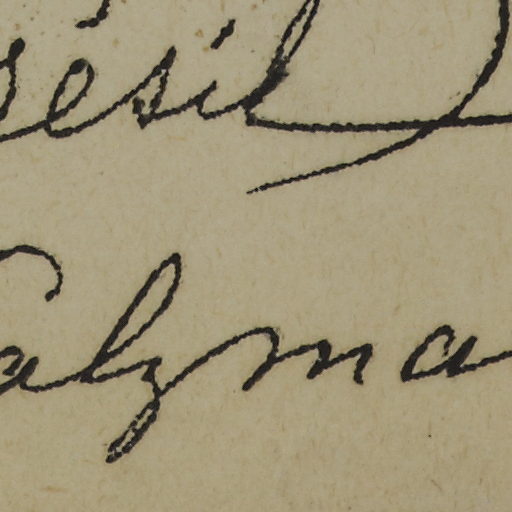 résil
alzma